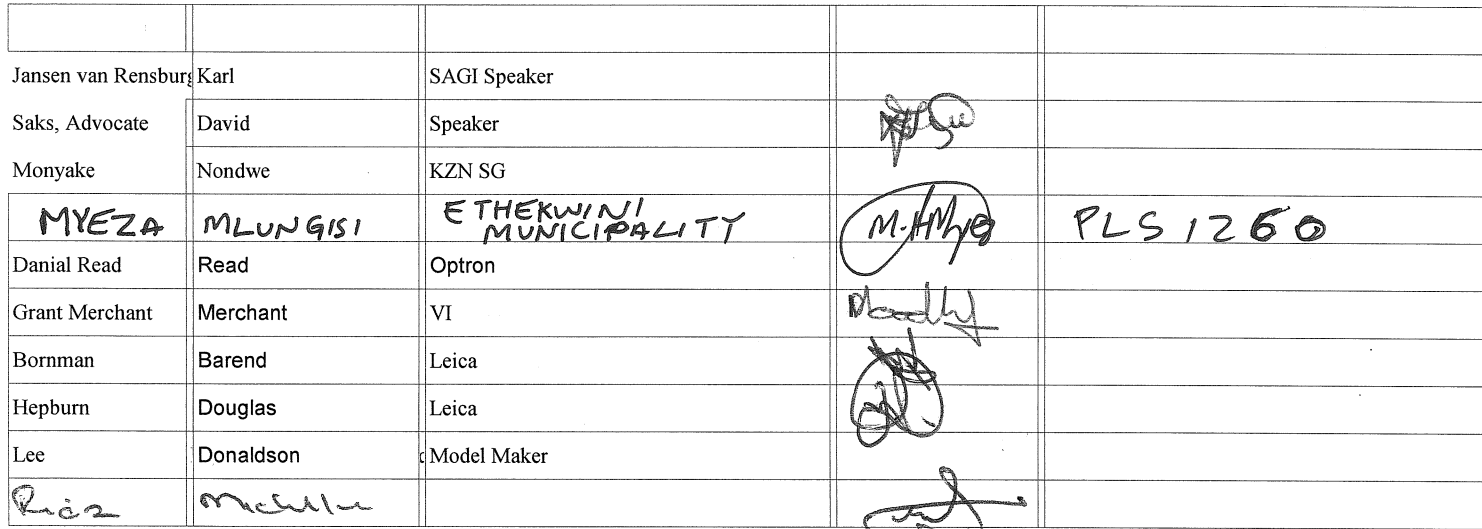 Jansen van Rensburg Karl SAGI Speaker
Saks, Advocate David Speaker
Monyake Nondwe KZN SG
MYEZA MLUNGISI ETHEKWINI MUNICIPALITY PLS 1260
Danial Read Read Optron
Grant Merchant Merchant VI
Bornman Barend Leica
Hepburn Douglas Leica
Lee Donaldson Model Maker